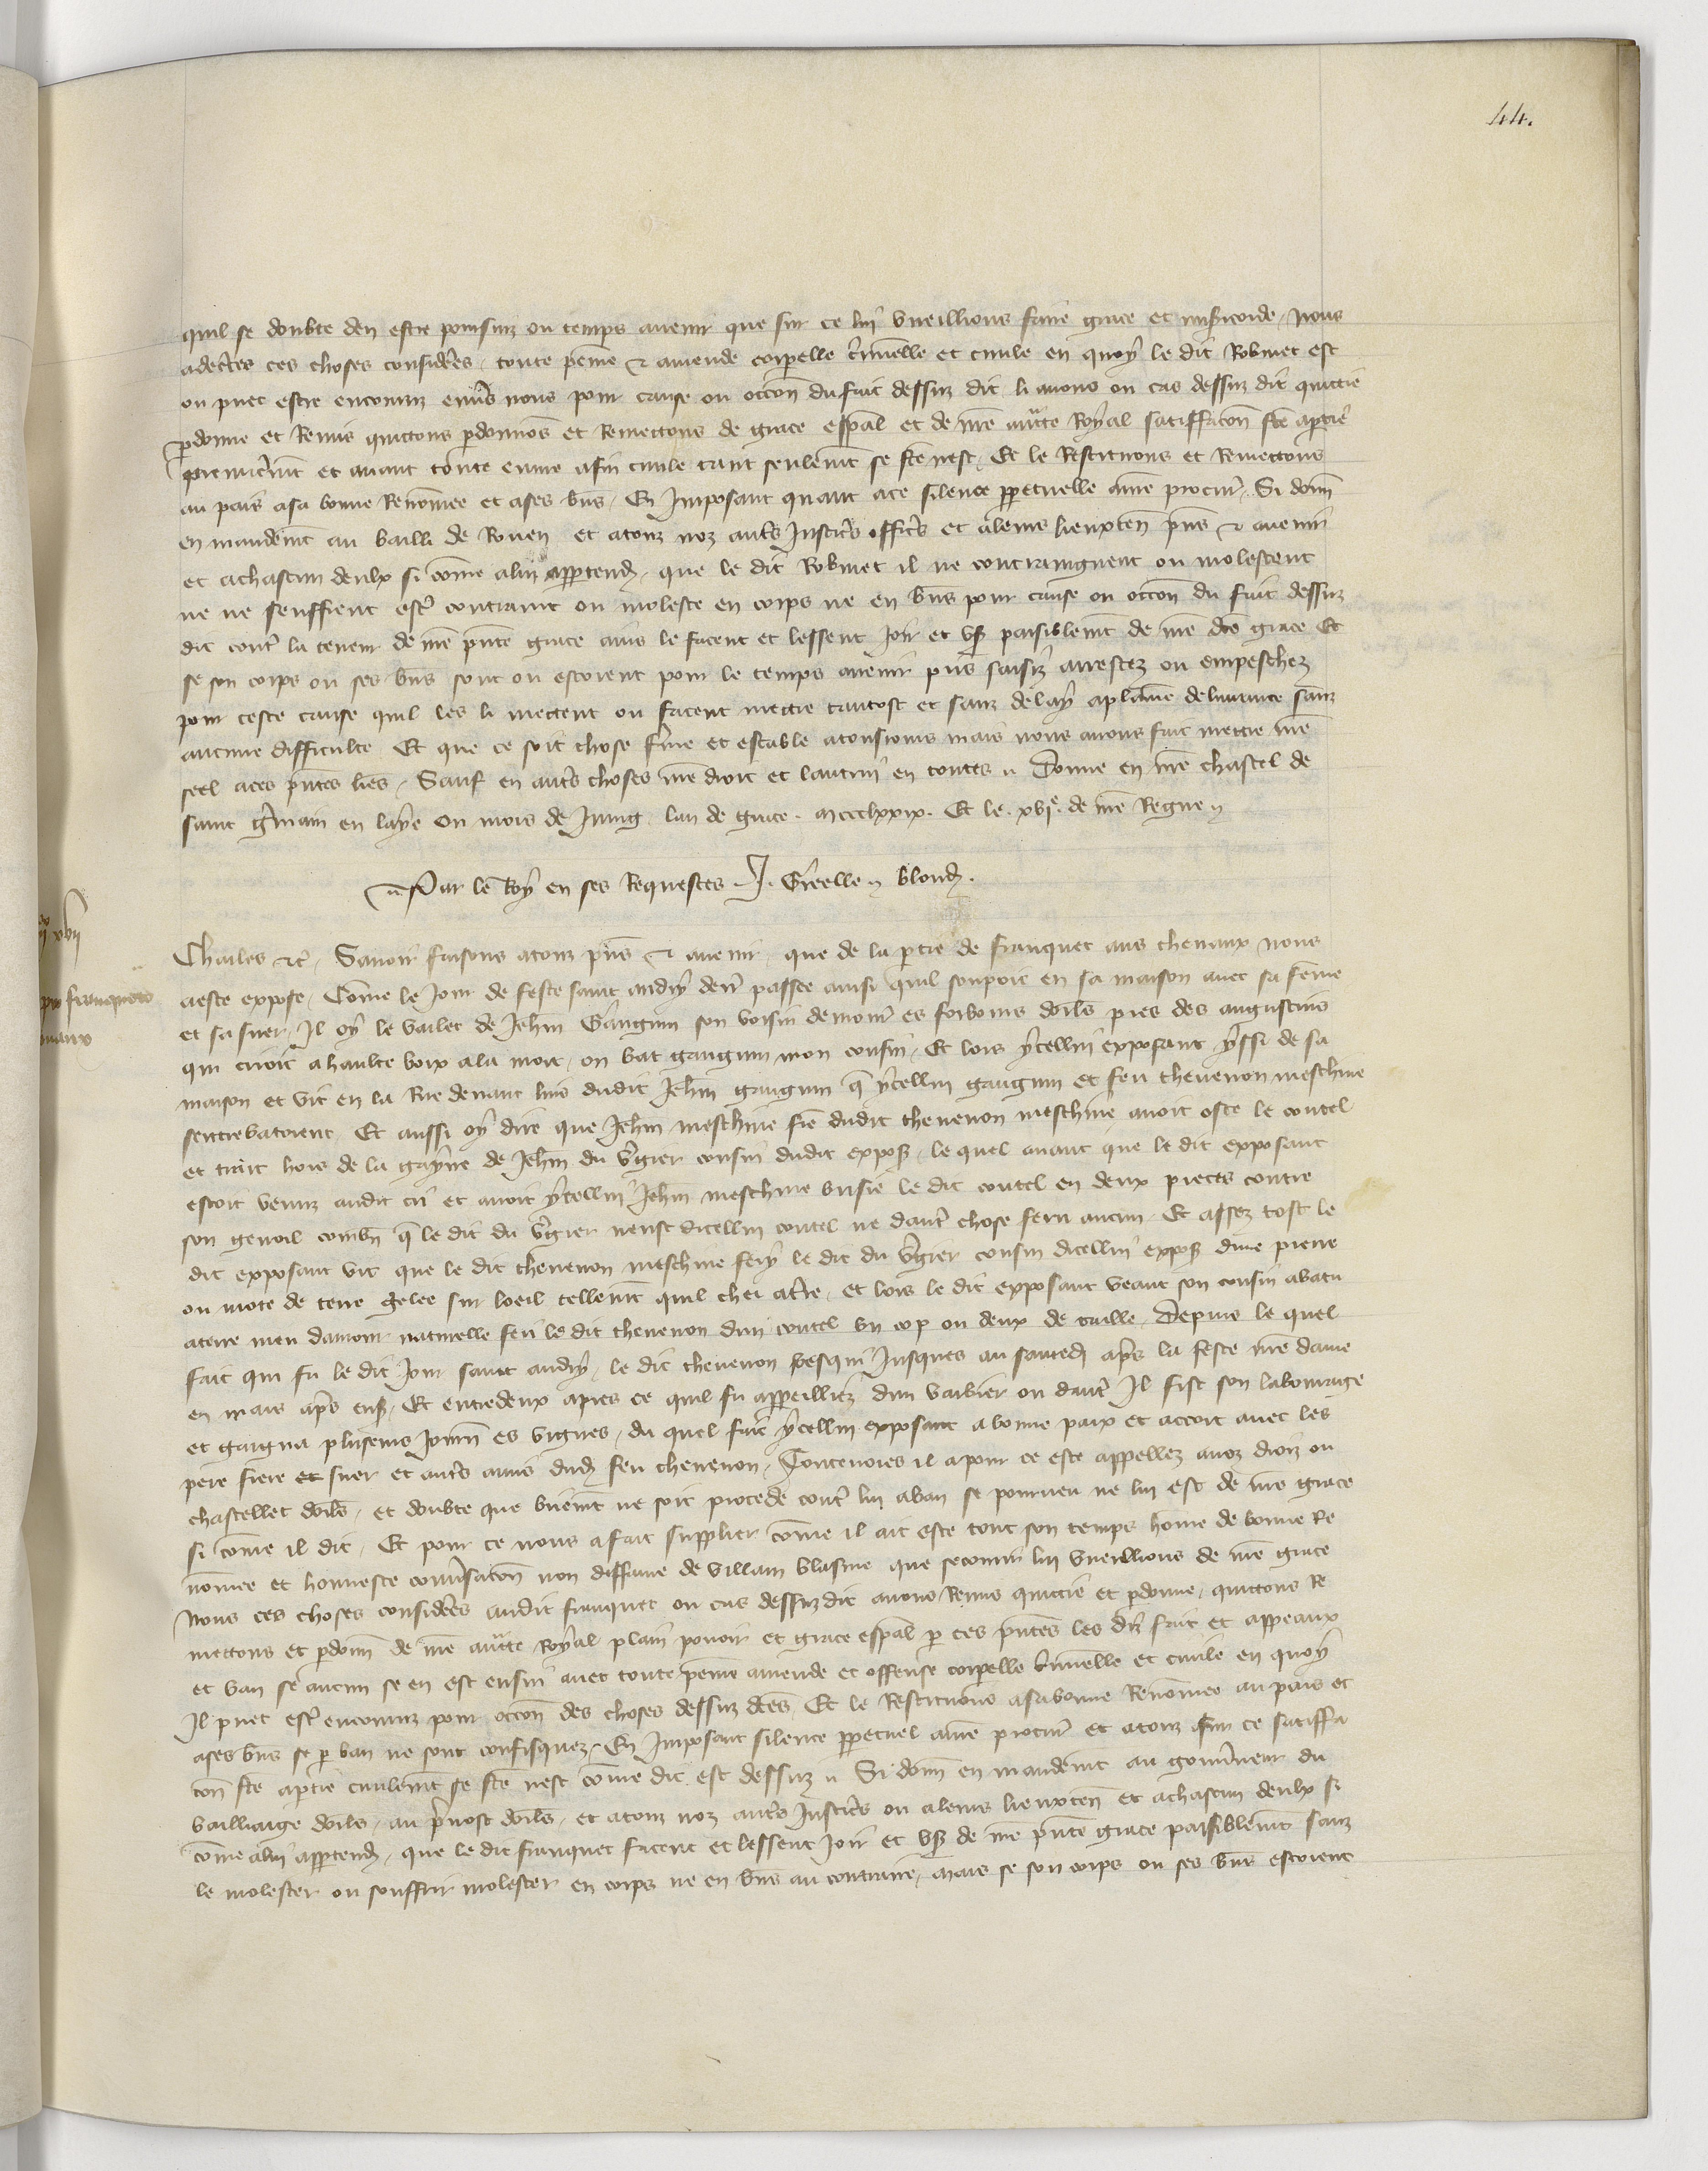 44.
quil se doubte den estre poursuiz ou temps avenir que sur ce lui vueillions faire grace et misicorde, Nous
adecertes ces choses considerees, toute peine & amende corpelle criminelle et civile en quoy le dit Robinet est
ou puet estre encouruz envs nous pour cause ou occon du fait dessuz dit li avons ou cas dessuz dit quittie
pdonne et Remis quittons pdonnos et Remettons de grace espal et de nre autte Royal satiffacon fte aptie
premieremt et avant toute euvre afin civile tant seulemt se fte nest, Et le Restituons et Remettons
au pais asa bonne Renomee et ases bns, En Imposant quant ace silence ppetuelle anre procur, Si donn
en mandemt au bailli de Rouen et atouz noz autrs Justicrs officrs et aleurs lieuxten pns & avenir
et achascun deulx si come alui apptendra, que le dit Robinet il ne contraingnent ou molestent
ne ne seuffrent estr contraint ou moleste en corps ne en bns pour cause ou occon du fait dessuz
dit contr la teneur de nre pnte grace ains le facent et lessent Joir et usr paisiblemt de nre dce grace Et
se son corps ou ses bns sont ou estoient pour le temps avenir pris saisiz arrestez ou empeschez
pour ceste cause quil les li mettent ou facent mettre tantost et sanz delay aplaine delivrance sanz
aucune difficulte Et que ce soit chose ferme et estable atousiours mais nous avons fait mettre nre
seel aces pntes lres, Sauf en autrs choses nre droit et lautrui en toutes Donne en nre chastel de
saint Gmain en laye Ou mois de Juing lan de grace mccclxxix. Et le xvie. de nre Regne
Par le Roy en ses Requestes J. Greelle blond.
Charles &c, Savoir faisons atouz pns & avenir, que de la ptie de franquet aus chevaux nous
aeste expose, Come le Jour de feste saint andry dern passee ainsi quil soupoit en sa maison avec sa feme
et sa suer, Il oy le varlet de Jehn Gaugun son voisin demour es forbours dorls pres des augustins
qui crioit a haulte voix ala mort, on bat gaugun mon cousin, Et lors ycellui exposant yssi de sa
maison et vit en la Rue devant luis dudit Jehn gaugun q ycellui gaugun et feu thevenon meschine
sentrebatoient, Et aussi oy dire que Jehn meschine fre dudit thevenon meschine avoit oste le coutel
et trait hors de la gayne de Jehn du Vgier cousin dudit expos, le quel avant que le dit exposant
estoit venuz audit cri et avoit ycellui Jehn meschine brisie le dit coutel en deux pieces contre
son genoil combn q le dit du Vgier neust dicellui coutel ne dautr chose feru aucun, Et assez tost le
dit exposant vit que le dit thevenon meschine fery le dit du Vgier cousin dicellui expos dune pierre
ou mote de terre gelee sur loeil tellemt quil chei atrre, et lors le dit exposant veant son cousin abatu
aterre meu damour naturelle feri le dit thevenon dun coutel un cop ou deux de taille, Depuis le quel
fait qui fu le dit Jour saint andry, le dit thevenon vesqui Jusques au samedi aprs la feste nre dame
en mars aprs ens, Et entredeux apres ce quil fu appeilliez dun barbier ou dautr Il fist son labourage
et gaigna plusieurs Journ es vignes, du quel fait ycellui exposant a bonne paix et accort avec les
pere frere et suer et autrs amis dud feu thevenon, Toutevoies il a pour ce este appellez anoz droiz ou
chastellet dorls, et doubte que briemt ne soit procede contr lui aban se pourveu ne lui est de nre grace
si come il dit, Et pour ce nous a fait supplier come il ait este tout son temps home de bonne Re
nomee et honneste convsacon non diffame de villain blasme que secourir lui vueillions de nre grace
Nous ces choses considerees audit franquet ou cas dessuz dit avons Remis quittie et pdonne, quittons Re
mettons et pdonn de nre autte Royal plain povoir et grace espal p ces pntes les diz fait et appeaux
et ban se aucun se en est ensui avec toute peine amende et offense corpelle criminelle et civile en quoy
Il puet estr encouruz pour occon des choses dessuz dtes, Et le Restituons asabonne Renomee au pais et
ases bns se p ban ne sont confisquez, En Imposant silence ppetuel anre procur et atouz sur ce satiffa
con fte aptie civilemt se fte nest come dit est dessuz Si donn en mandemt au gouvneur du
bailliaige dorls, au prvost dorls, et atouz noz autrs Justicrs ou aleurs lieuxten et achascun deulx si
come alui apptendra, que le dit franquet facent et lessent Joir et usr de nre pnte grace paisiblemt sanz
le molester ou souffrir molester en corps ne en bns au contraire, Mais se son corps ou ses bns estoient